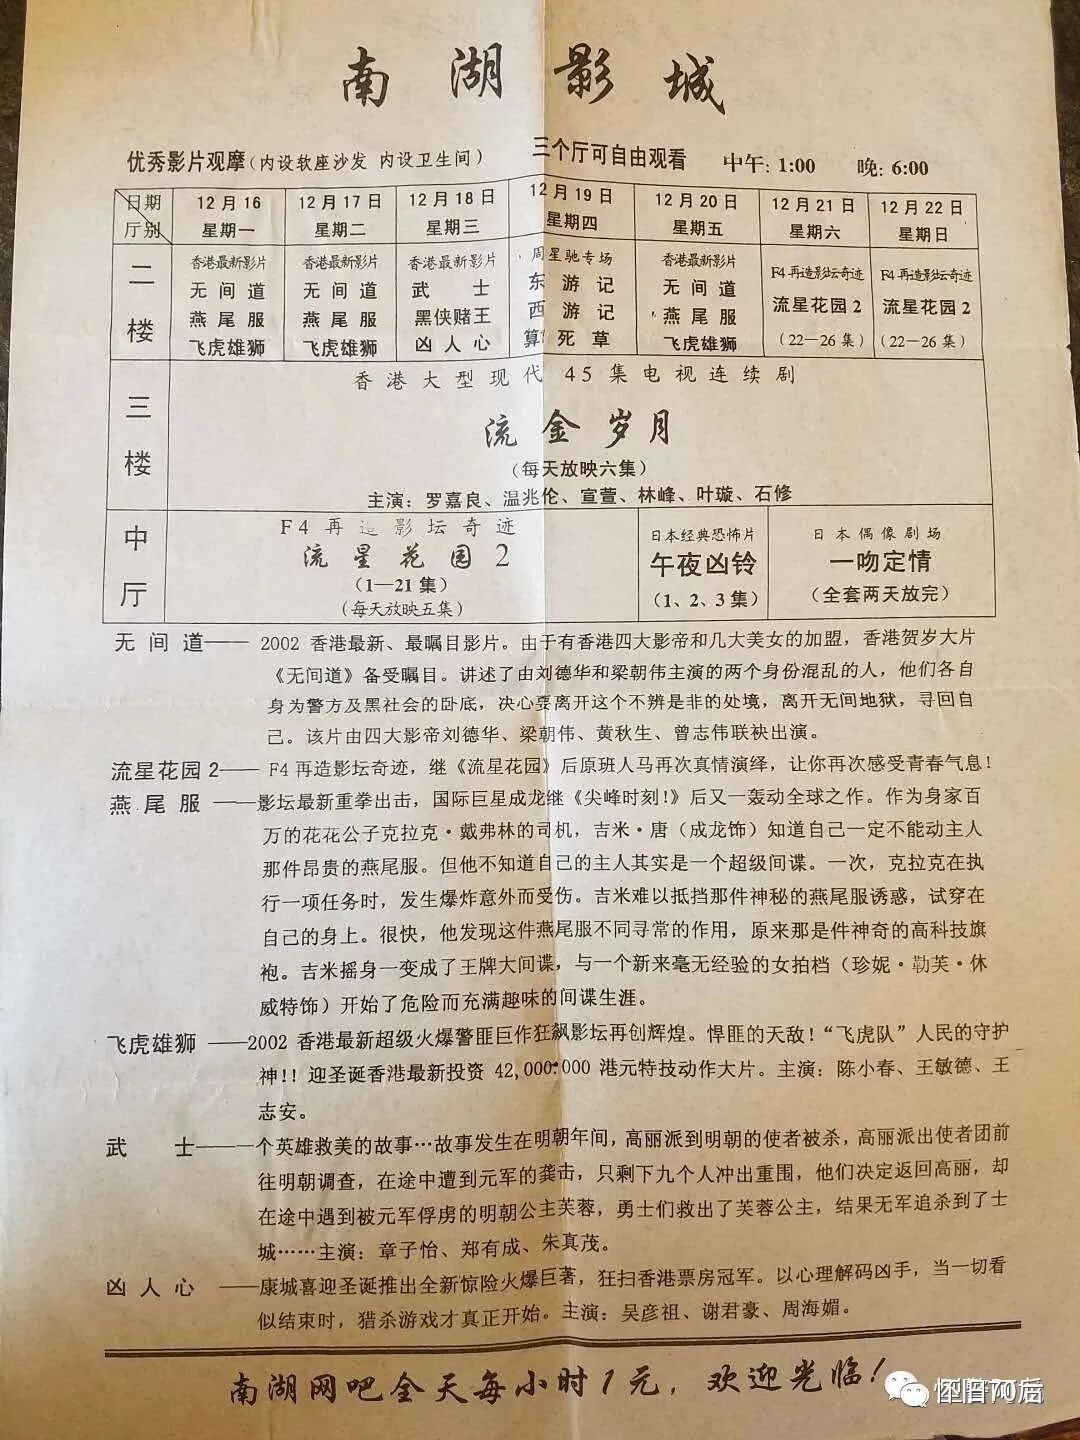 南湖影城
优秀影片观摩(内设软座沙发 内设卫生间) 三个厅可自由观看 中午:1:00 晚:6:00
日期 厅别 12月16 星期一 12月17日 星期二 12月18日 星期三 12月19日 星期四 12月20日 星期五 12月21日 星期六 12月22日 星期日
二楼
香港最新影片 无间道 燕尾服 飞虎雄狮
香港最新影片 无间道 燕尾服 飞虎雄狮
香港最新影片 武士 黑侠赌王 凶人心
周星驰专场 东游记 西游记 算死草
香港最新影片 无间道 燕尾服 飞虎雄狮
F4再造影坛奇迹 流星花园2 (22—26集)
F4再造影坛奇迹 流星花园2 (22—26集)
三楼
香港大型现代45集电视连续剧
流金岁月
(每天放映六集)
主演:罗嘉良、温兆伦、宣萱、林峰、叶璇、石修
中厅
F4再造影坛奇迹
流星花园2
(1—21集)
(每天放映五集)
日本经典恐怖片
午夜凶铃
(1、2、3集)
日本偶像剧场
一吻定情
(全套两天放完)
无间道——2002香港最新、最瞩目影片。由于有香港四大影帝和几大美女的加盟,香港贺岁大片
《无间道》备受瞩目。讲述了由刘德华和梁朝伟主演的两个身份混乱的人,他们各自
身为警方及黑社会的卧底,决心要离开这个不辨是非的处境,离开无间地狱,寻回自
己。该片由四大影帝刘德华、梁朝伟、黄秋生、曾志伟联袂出演。
流星花园2——F4再造影坛奇迹,继《流星花园》后原班人马再次真情演绎,让你再次感受青春气息!
燕尾服——影坛最新重拳出击,国际巨星成龙继《尖峰时刻!》后又一轰动全球之作。作为身家百
万的花花公子克拉克·戴弗林的司机,吉米·唐(成龙饰)知道自己一定不能动主人
那件昂贵的燕尾服。但他不知道自己的主人其实是一个超级间谍。一次,克拉克在执
行一项任务时,发生爆炸意外而受伤。吉米难以抵挡那件神秘的燕尾服诱惑,试穿在
自己的身上。很快,他发现这件燕尾服不同寻常的作用,原来那是件神奇的高科技旗
袍。吉米摇身一变成了王牌大间谍,与一个新来毫无经验的女拍档(珍妮·勒芙·休
威特饰)开始了危险而充满趣味的间谍生涯。
飞虎雄狮——2002香港最新超级火爆警匪巨作狂飙影坛再创辉煌。悍匪的天敌!“飞虎队”人民的守护
神!!迎圣诞香港最新投资42,000:000港元特技动作大片。主演:陈小春、王敏德、王
志安。
武士——一个英雄救美的故事…故事发生在明朝年间,高丽派到明朝的使者被杀,高丽派出使者团前
往明朝调查,在途中遭到元军的袭击,只剩下九个人冲出重围,他们决定返回高丽,却
在途中遇到被元军俘虏的明朝公主芙蓉,勇士们救出了芙蓉公主,结果无军追杀到了士
城……主演:章子怡、郑有成、朱真茂。
凶人心——康城喜迎圣诞推出全新惊险火爆巨著,狂扫香港票房冠军。以心理解码凶手,当一切看
似结束时,猎杀游戏才真正开始。主演:吴彦祖、谢君豪、周海媚。
南湖网吧全天每小时1元,欢迎光临!